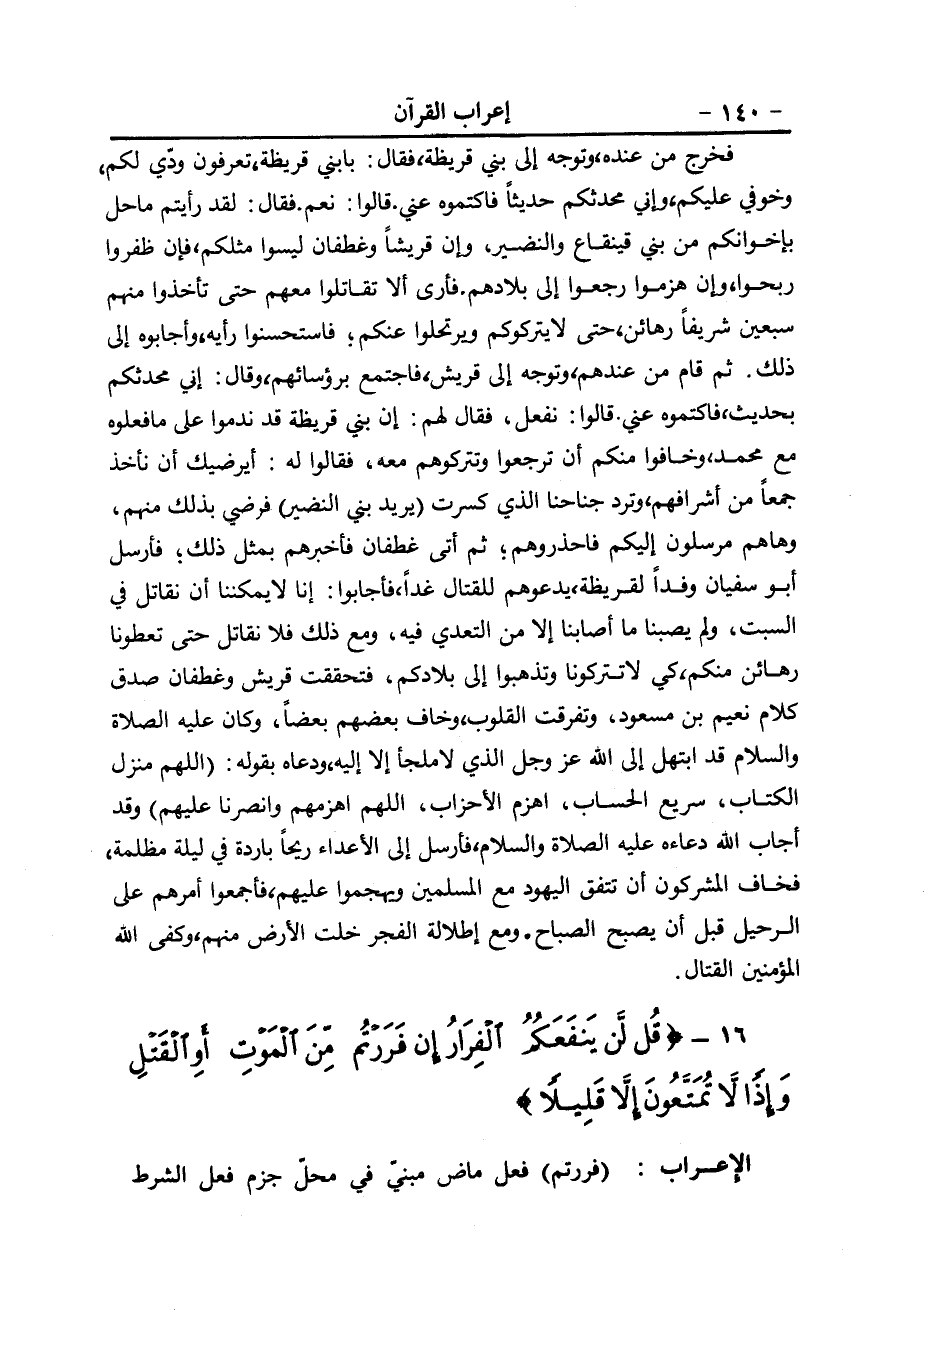 - ١٤٠ - إعراب القرآن
فخرج من عنده،وتوجه إلى بني قريظة،فقال: يابني قريظة،تعرفون ودّي لكم،
وخوفي عليكم،وإني محدثكم حديثاً فاكتموه عني.قالوا: نعم.فقال: لقد رأيتم ماحل
بإخوانكم من بني قينقاع والنضير، وإن قريشاً وغطفان ليسوا مثلكم،فإن ظفروا
ربحوا،وإن هزموا رجعوا إلى بلادهم.فأرى ألا تقاتلوا معهم حتى تأخذوا منهم
سبعين شريفاً رهائن،حتى لايتركوكم ويرتحلوا عنكم؛ فاستحسنوا رأيه،وأجابوه إلى
ذلك. ثم قام من عندهم،وتوجه إلى قريش،فاجتمع برؤسائهم،وقال: إني محدثكم
بحديث،فاكتموه عني.قالوا: نفعل، فقال لهم: إن بني قريظة قد ندموا على مافعلوه
مع محمد،وخافوا منكم أن ترجعوا وتتركوهم معه، فقالوا له : أيرضيك أن نأخذ
جمعاً من أشرافهم،وترد جناحنا الذي كسرت (يريد بني النضير) فرضي بذلك منهم،
وهاهم مرسلون إليكم فاحذروهم؛ ثم أتى غطفان فأخبرهم بمثل ذلك؛ فأرسل
أبو سفيان وفداً لقريظة،يدعوهم للقتال غداً،فأجابوا: إنا لايمكننا أن نقاتل في
السبت، ولم يصبنا ما أصابنا إلا من التعدي فيه، ومع ذلك فلا نقاتل حتى تعطونا
رهائن منكم،كي لاتتركونا وتذهبوا إلى بلادكم، فتحققت قريش وغطفان صدق
كلام نعيم بن مسعود، وتفرقت القلوب،وخاف بعضهم بعضاً، وكان عليه الصلاة
والسلام قد ابتهل إلى الله عز وجل الذي لاملجأ إلا إليه،ودعاه بقوله: (اللهم منزل
الكتاب، سريع الحساب، اهزم الأحزاب، اللهم اهزمهم وانصرنا عليهم) وقد
أجاب الله دعاءه عليه الصلاة والسلام،فأرسل إلى الأعداء ريحاً باردة في ليلة مظلمة،
فخاف المشركون أن تتفق اليهود مع المسلمين ويهجموا عليهم،فأجمعوا أمرهم على
الرحيل قبل أن يصبح الصباح.ومع إطلالة الفجر خلت الأرض منهم،وكفى الله
المؤمنين القتال.
١٦ – ﴿قُل لَّن يَنفَعَكُمُ ٱلْفِرَارُ إِن فَرَرْتُم مِّنَ ٱلْمَوْتِ أَوِ ٱلْقَتْلِ
وَإِذًا لَّا تُمَتَّعُونَ إِلَّا قَلِيلًا﴾
الإعراب : (فررتم) فعل ماض مبنيّ في محلّ جزم فعل الشرط